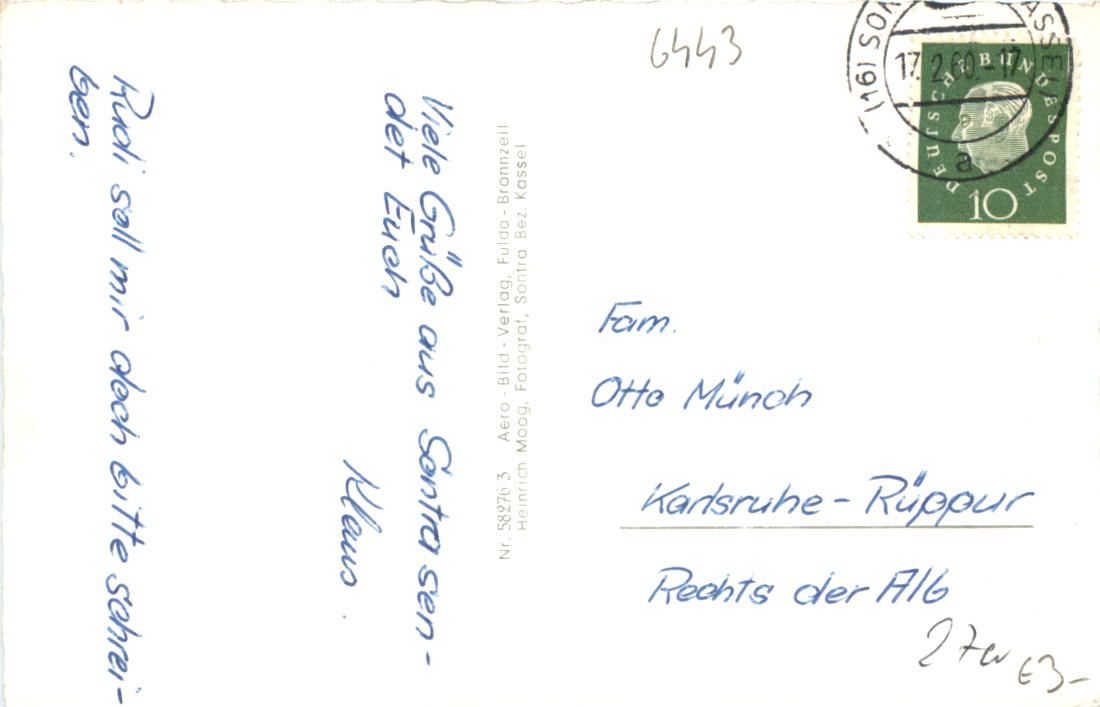 Viele Grüße aus Sontra sen-
det Euch
Klaus.
Rudi soll mir doch bitte schrei-
ben.
Nr. 58276 3 Aero - Bild - Verlag, Fulda - Bronnzell
Heinrich Moog, Fotograf, Sontra Bez. Kassel
6443
(16) SON
17.2.60.-17
a
DEUTSCHE BUNDESPOST
10
Fam.
Otto Münch
Karlsruhe - Rüppur
Rechts der Alb
€3,-